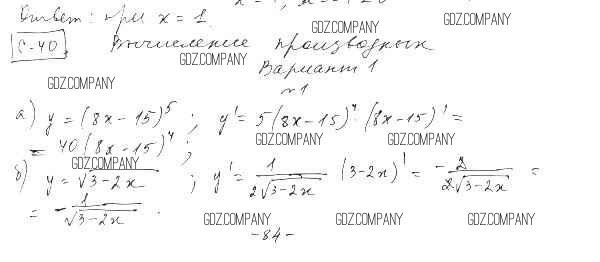 Ответ: при x = 1.
GDZ.COMPANY GDZ.COMPANY
С-40 Вычисление производных
GDZ.COMPANY
Вариант 1
GDZ.COMPANY
№1
а) y = (8x - 15)^5 ; y' = 5(8x - 15)^4 · (8x - 15)' =
= 40(8x - 15)^4 ;
GDZ.COMPANY GDZ.COMPANY
GDZ.COMPANY
б) y = √(3 - 2x) ; y' = 1/(2√(3 - 2x)) (3 - 2x)' = -2/(2√(3 - 2x)) =
= -1/√(3 - 2x) .
GDZ.COMPANY GDZ.COMPANY GDZ.COMPANY
- 84 -